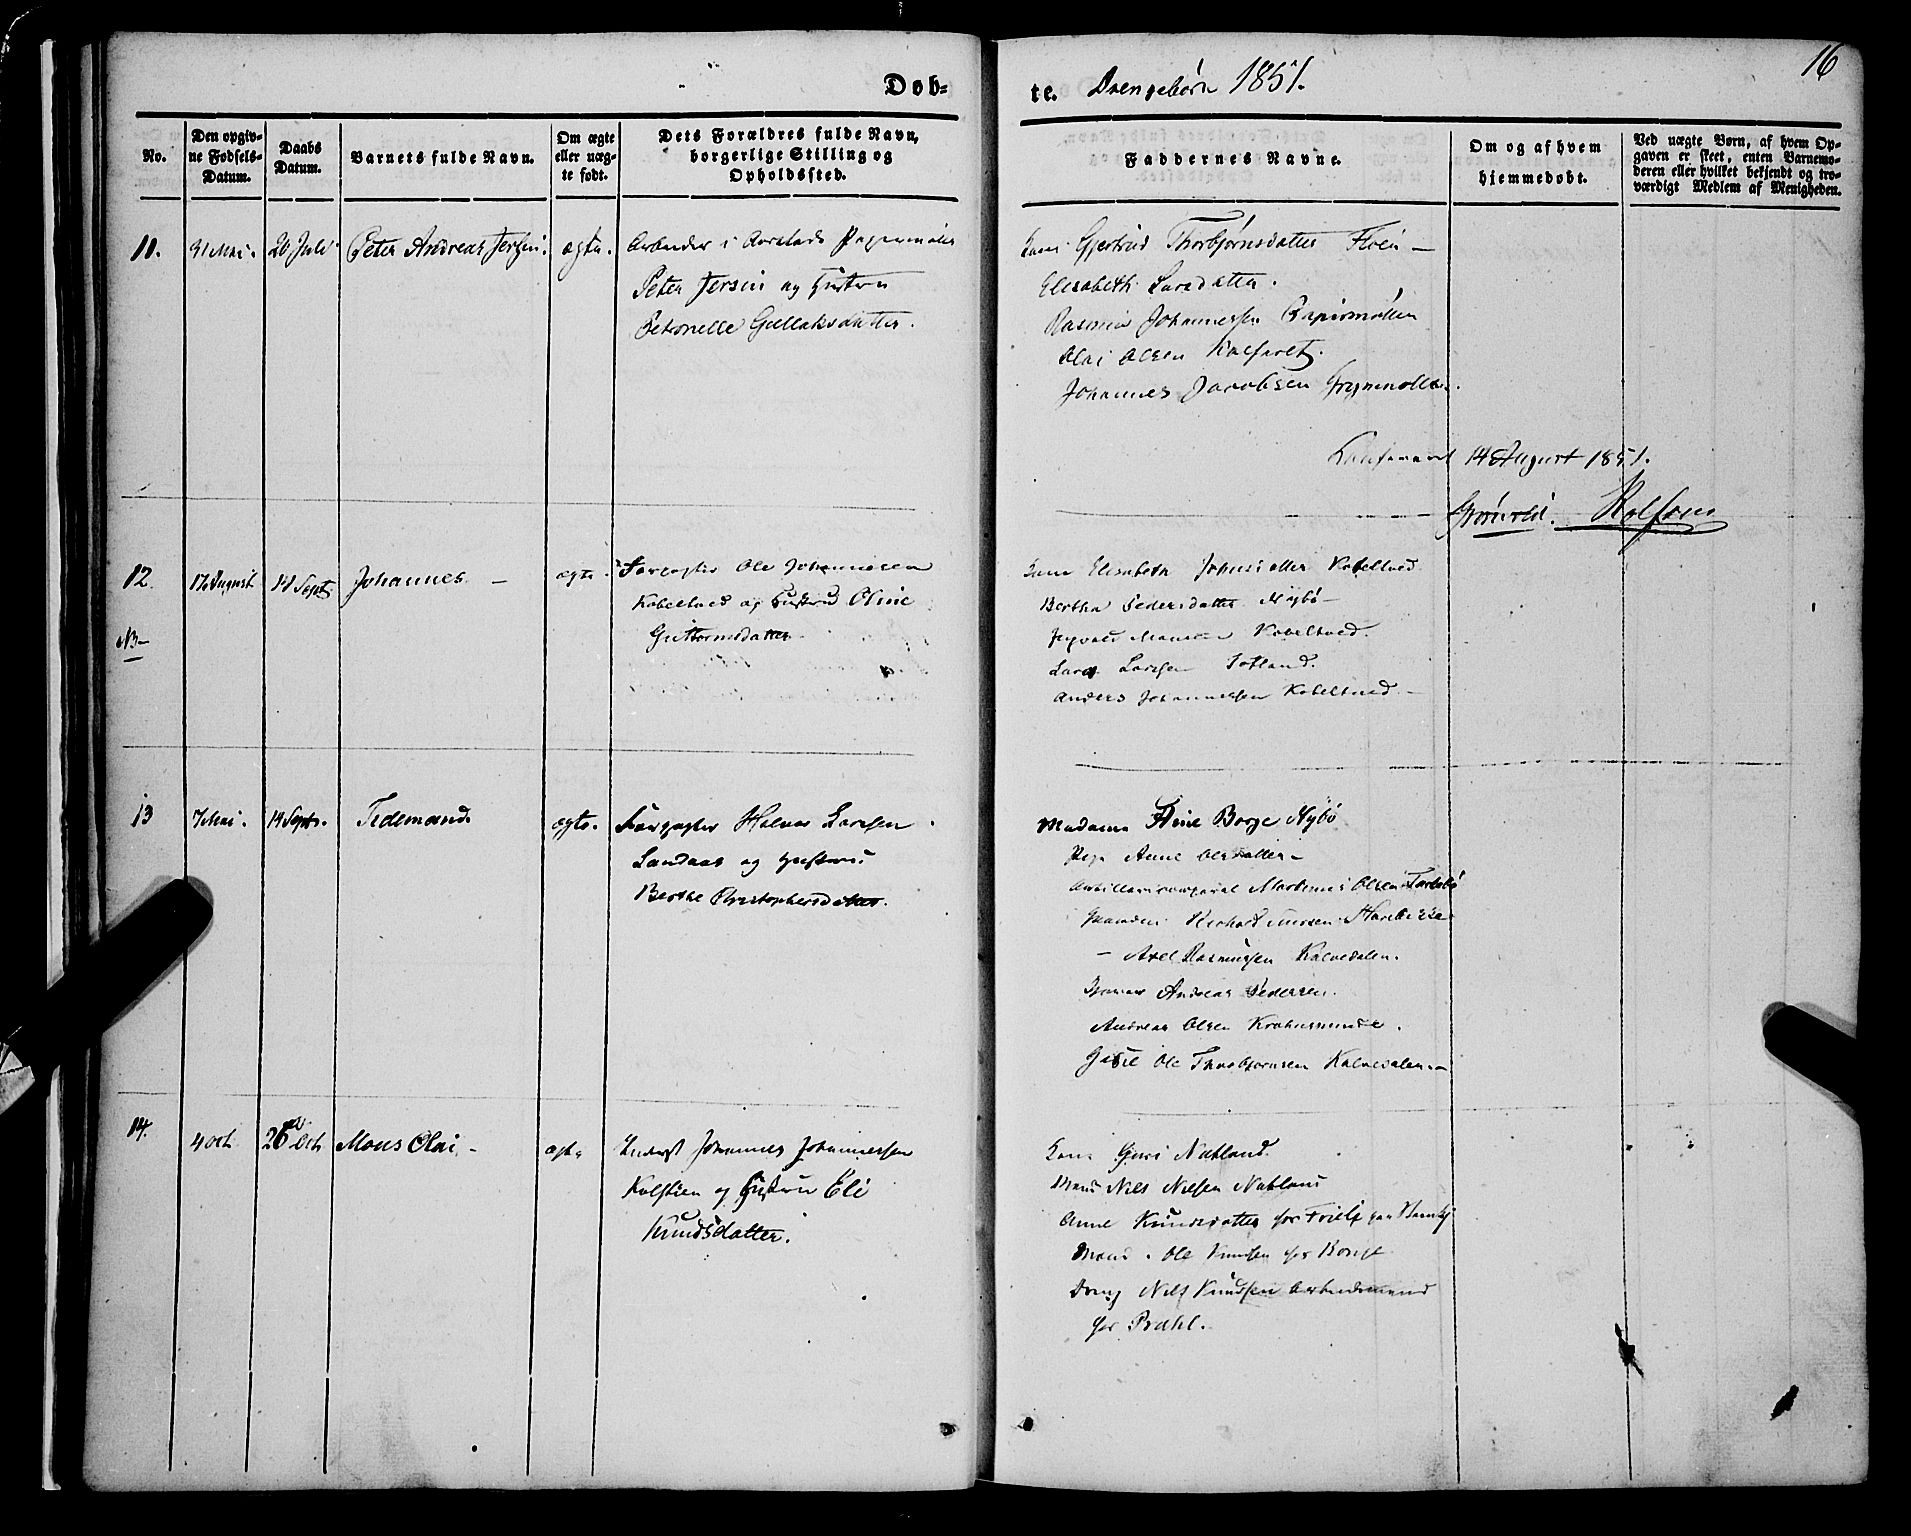 16
Døb-
te. Drengebørn 1851.
No.
Den opgiv-
ne Fødsels-
Datum.
Daabs
Datum.
Barnets fulde Navn.
Om ægte
eller uæg-
te født.
Dets Forældres fulde Navn,
borgerlige Stilling og
Opholdssted.
Faddernes Navne.
Om og af hvem
hjemmedøbt.
Ved uægte Børn, af hvem Op-
gaven er skeet, enten Barnemo-
deren eller hvilket bekjendt og tro-
værdigt Medlem af Menigheden.
11. 31 Mai. 20 Juli Peter Andreas Jersin. ægte. Arbeider i Aarstads Papermølle
Peter Jersin og Hustru
Petronelle Gullaksdatter.
Kone Gjertrud Thorbjørnsdatter Fløen —
Elisabeth Larsdatter.
Rasmus Johannessen Papirmøllen
Olai Olsen Kalfaret.
Johannes Jacobsen Grynmøllen.
Confereret 14 August 1851.
Grönvold. Rolfsen
12. 17 August 14 Sept. Johannes — ægte. Forpagter Ole Johannesen
Kobeltvedt og Hustru Oline
Guttormsdatter
NB—
Kone Elisabeth Johnsdatter Kobeltved
Bertha Pedersdatter Nybø —
Mons Kobeltved.
Lars Larsen Totland.
Anders Johannessen Kobeltved —
13 7 Mai. 14 Sept. Tidemand. ægte. Forpagter Halvor Larssen
Landaas og Hustru
Berthe Christophersdatter.
Madame Børge Nybø
Pige Anne Olsdatter —
Artillericorporal Martinus Olsen
— Axel Rasmussen Kalvedalen.
Andreas Pedersen.
Andreas Olsen
Ole Thorbjørnsen Kalvedalen. —
14. 4 Oct. 26 Oct. Mons Olai. — ægte Inderst Johannes Johannessen
Kolstien og Hustru Eli
Knudsdatter.
Kone Guri Natland.
Mand Nils Nilsen Natland
Anne Knudsdatter hos
Mand. Ole Knudsen
Dreng Nils Knudsen Arbeidsmand
hos Prahl.